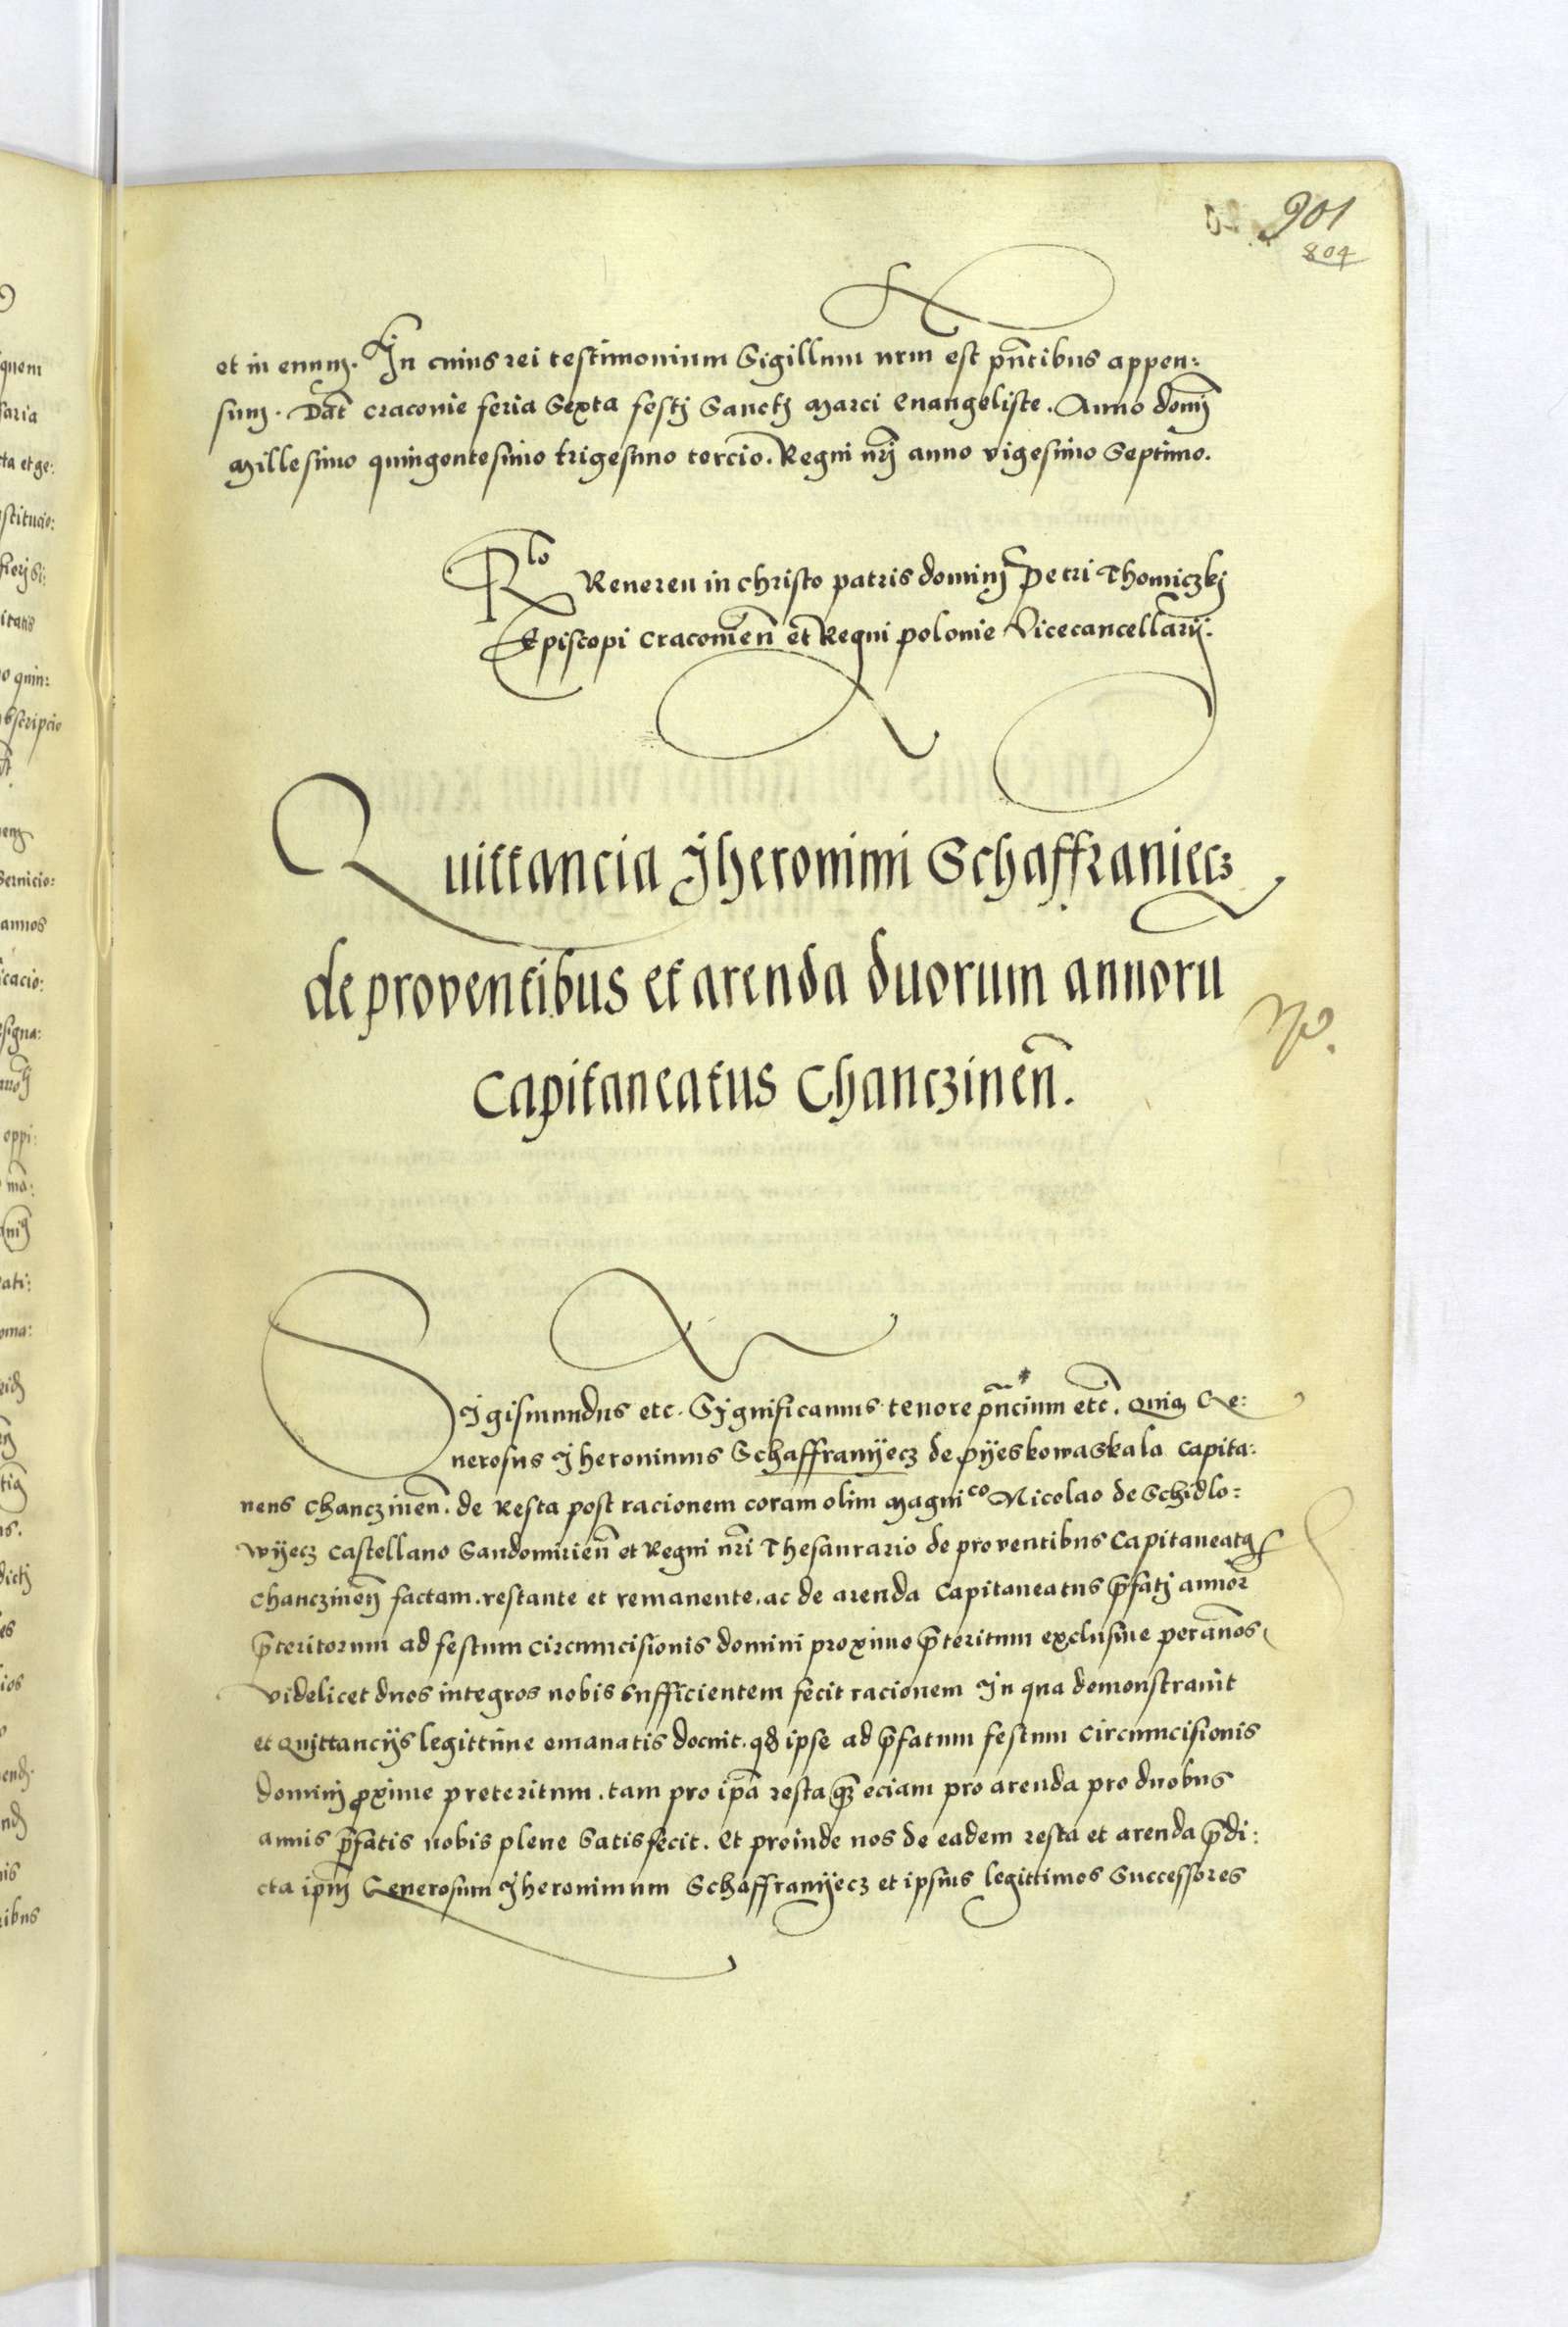 901
804
et in euum. In cuius rei testimonium Sigillum nrm est pñtibus appen:
sum. Dat̃ Craconie feria Sexta festj Sanctj Marci Euangeliste. Anno domj
Millesimo quingentesimo trigesimo tercio. Regni nrj anno vigesimo Septimo.
Rlo Reueren in christo patris dominj Petri Thomiczkj
Episcopi Cracouieñ et Regni polonie Vicecancellarij.
Quittancia Jheronimi Schaffraniecz
de proventibus et arenda duorum annoru
Capitaneatus Chanczineñ.
Sigismundus etc. Sygnificamus tenore pñcium etc̃. Quia Ge:
nerosus Jheronimus Schaffranyecz de pyeskowaskala Capita:
neus Chanczineñ. de Resta post racionem coram olim Magnico Nicolao de Schidlo:
wyecz Castellano Sandomirieñ et Regni nr̃i Thesaurario de proventibus Capitaneatus
Chancz­ineñ factam. restante et remanente. ac de arenda Capitaneatus p̃fatj annor̃
p̃teritorum ad festum Circumcisionis domini proximo p̃teritum exclusiue per añnos
videlicet duos integros nobis sufficientem fecit racionem In qua demonstrauit
et Quittancijs legittime emanatis docuit. qd ipse ad p̃fatum festum Circumcisionis
dominj proxime preteritum. tam pro ip̃a resta qz̃ eciam pro arenda pro duobus
annis p̃fatis nobis plene Satisfecit. Et proinde nos de eadem resta et arenda p̃di:
cta ip̃m Generosum Jheronimum Schaffranyecz et ipsius legittimos Successores